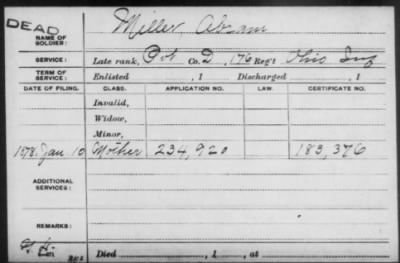 DEAD
NAME OF SOLDIER: Miller Abram
SERVICE: Late rank, Pvt Co. D, 176 Reg't Ohio Inf
TERM OF SERVICE: Enlisted , 1 Discharged , 1
DATE OF FILING. CLASS. APPLICATION NO. LAW. CERTIFICATE NO.
Invalid,
Widow,
Minor,
1878. Jan 10 Mother 234,920 183,376
ADDITIONAL SERVICES:
REMARKS:
Died , 1 , at